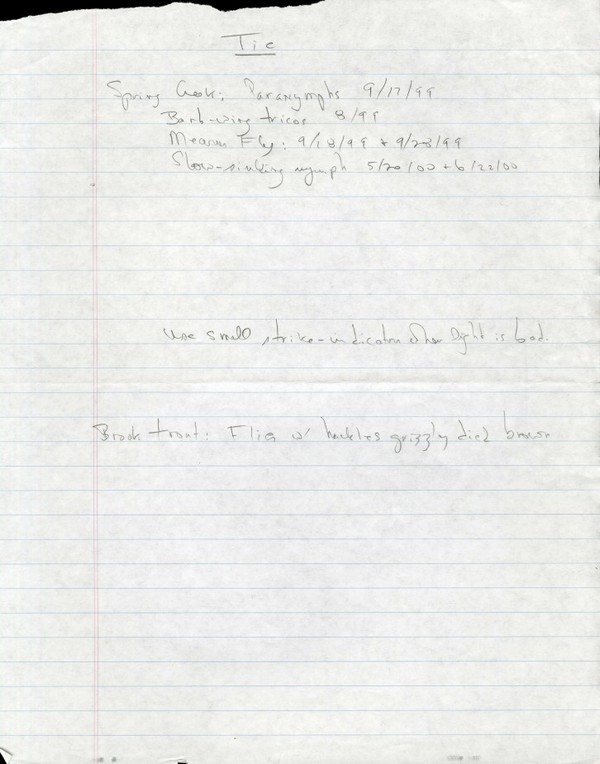 Tie
Spring Creek: Paranymphs 9/17/99
Barb-wing tricos 8/99
Mearon Fly: 9/18/99 + 9/23/99
Slow-sinking nymph 5/20/00 + 6/22/00
Use small strike-indicator when light is bad.
Brook trout: Flies w/ hackles grizzly died brown